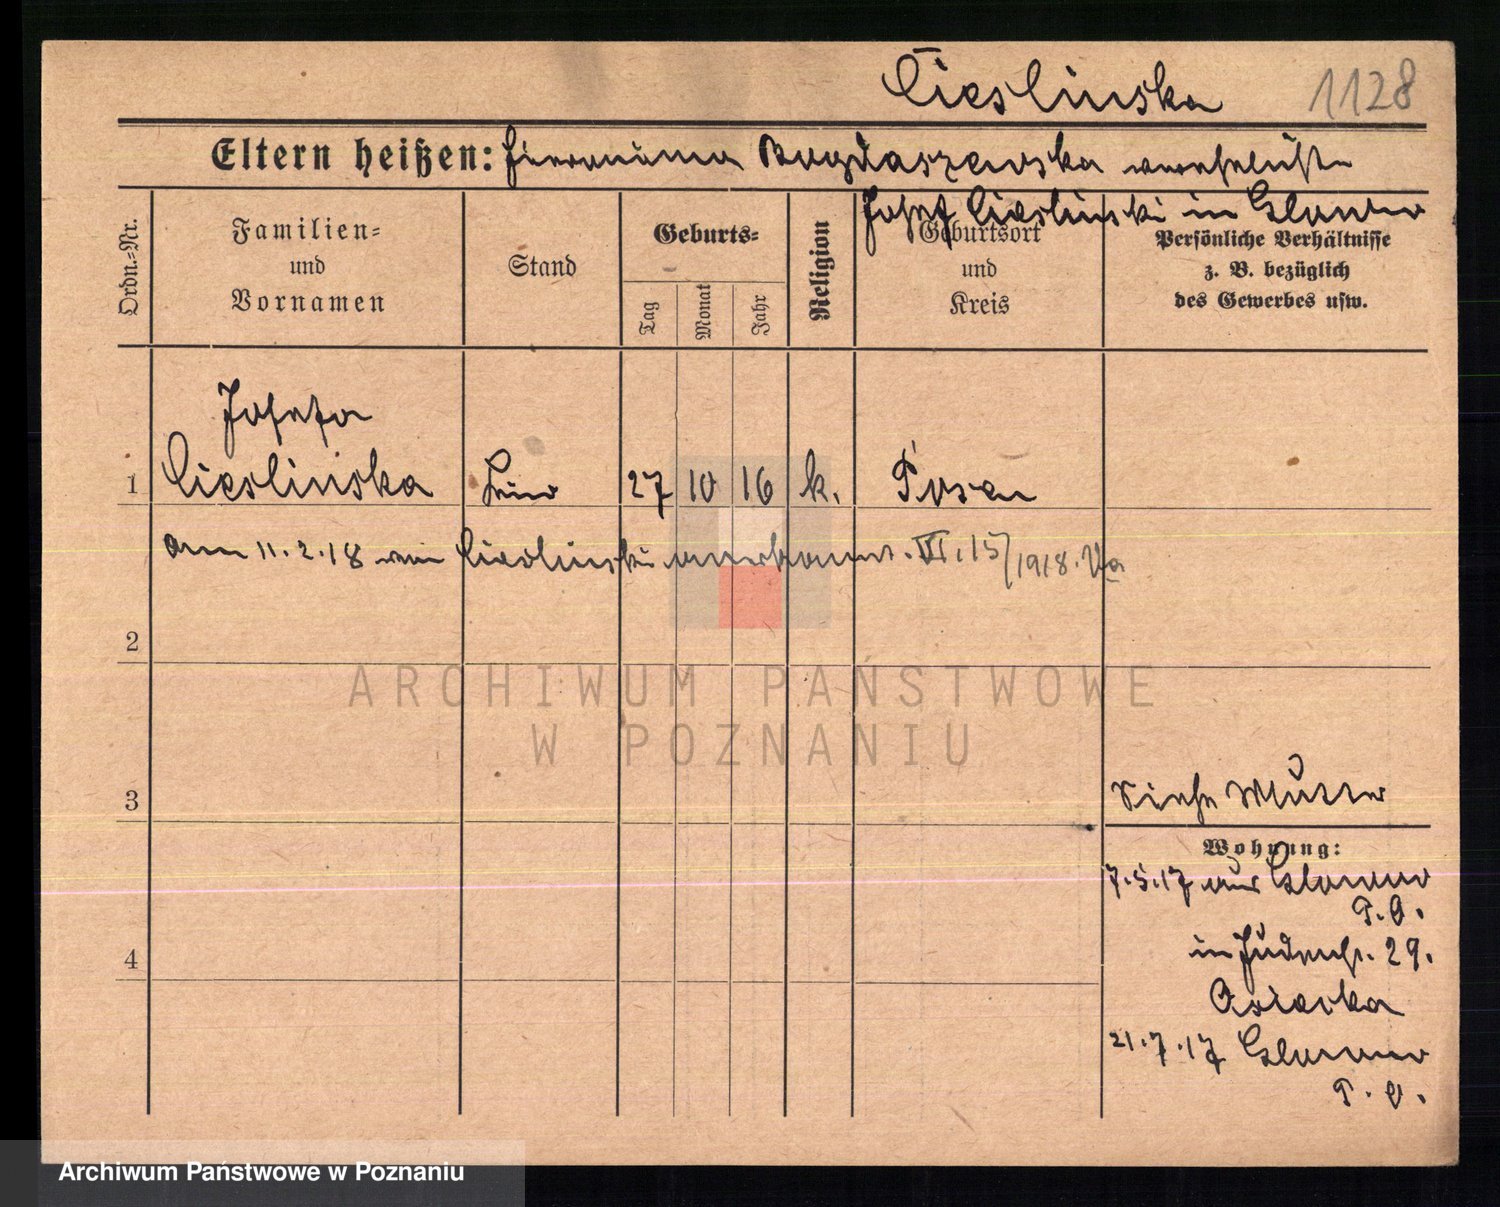 Cieslinska 1128
Eltern heißen: Hieronima Bogdaszewska verehelichte
Josef Cieslinski in Glowno
Ordn.-Nr.
Familien-
und
Vornamen
Stand
Geburts-
Tag
Monat
Jahr
Religion
Geburtsort
und
Kreis
Persönliche Verhältnisse
z. B. bezüglich
des Gewerbes usw.
Josefa
1 Cieslinska Kind 27 10 16 k. Posen
am 11.2.18 von Cieslinski anerkannt. VI.15/1918. Va
2
3
Siehe Mutter
Wohnung:
7.5.17 aus Glowno
P. O.
in Judenstr. 29.
4
21.7.17 Glowno
P. O.
ARCHIWUM PAŃSTWOWE
W POZNANIU
Archiwum Państwowe w Poznaniu